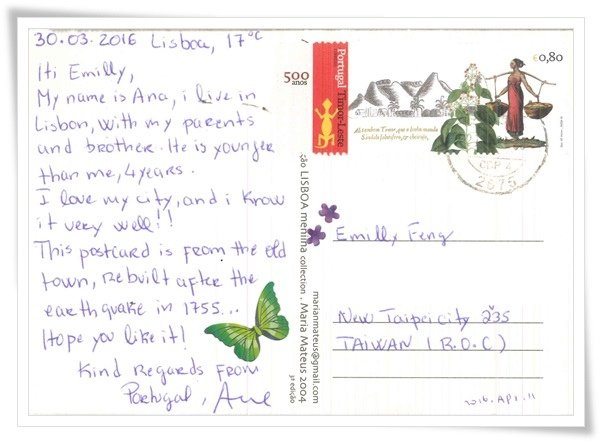 30.03.2016 Lisboa, 17°C
Hi Emilly,
My name is Ana, i live in
Lisbon, with my parents
and brother. He is younger
than me, 4 years.
I love my city, and i know
it very well!!
This postcard is from the old
town, rebuilt after the
earthquake in 1755...
Hope you like it!
Kind Regards From
Portugal, Ane
500
anos
Portugal Timor-Leste
€0,80
2675
ção LISBOA menina collection . Maria Mateus 2004
marianmateus@gmail.com
3ª edição
Emilly Feng
New Taipei city 235
TAIWAN (R.O.C)
2016. APR. 11